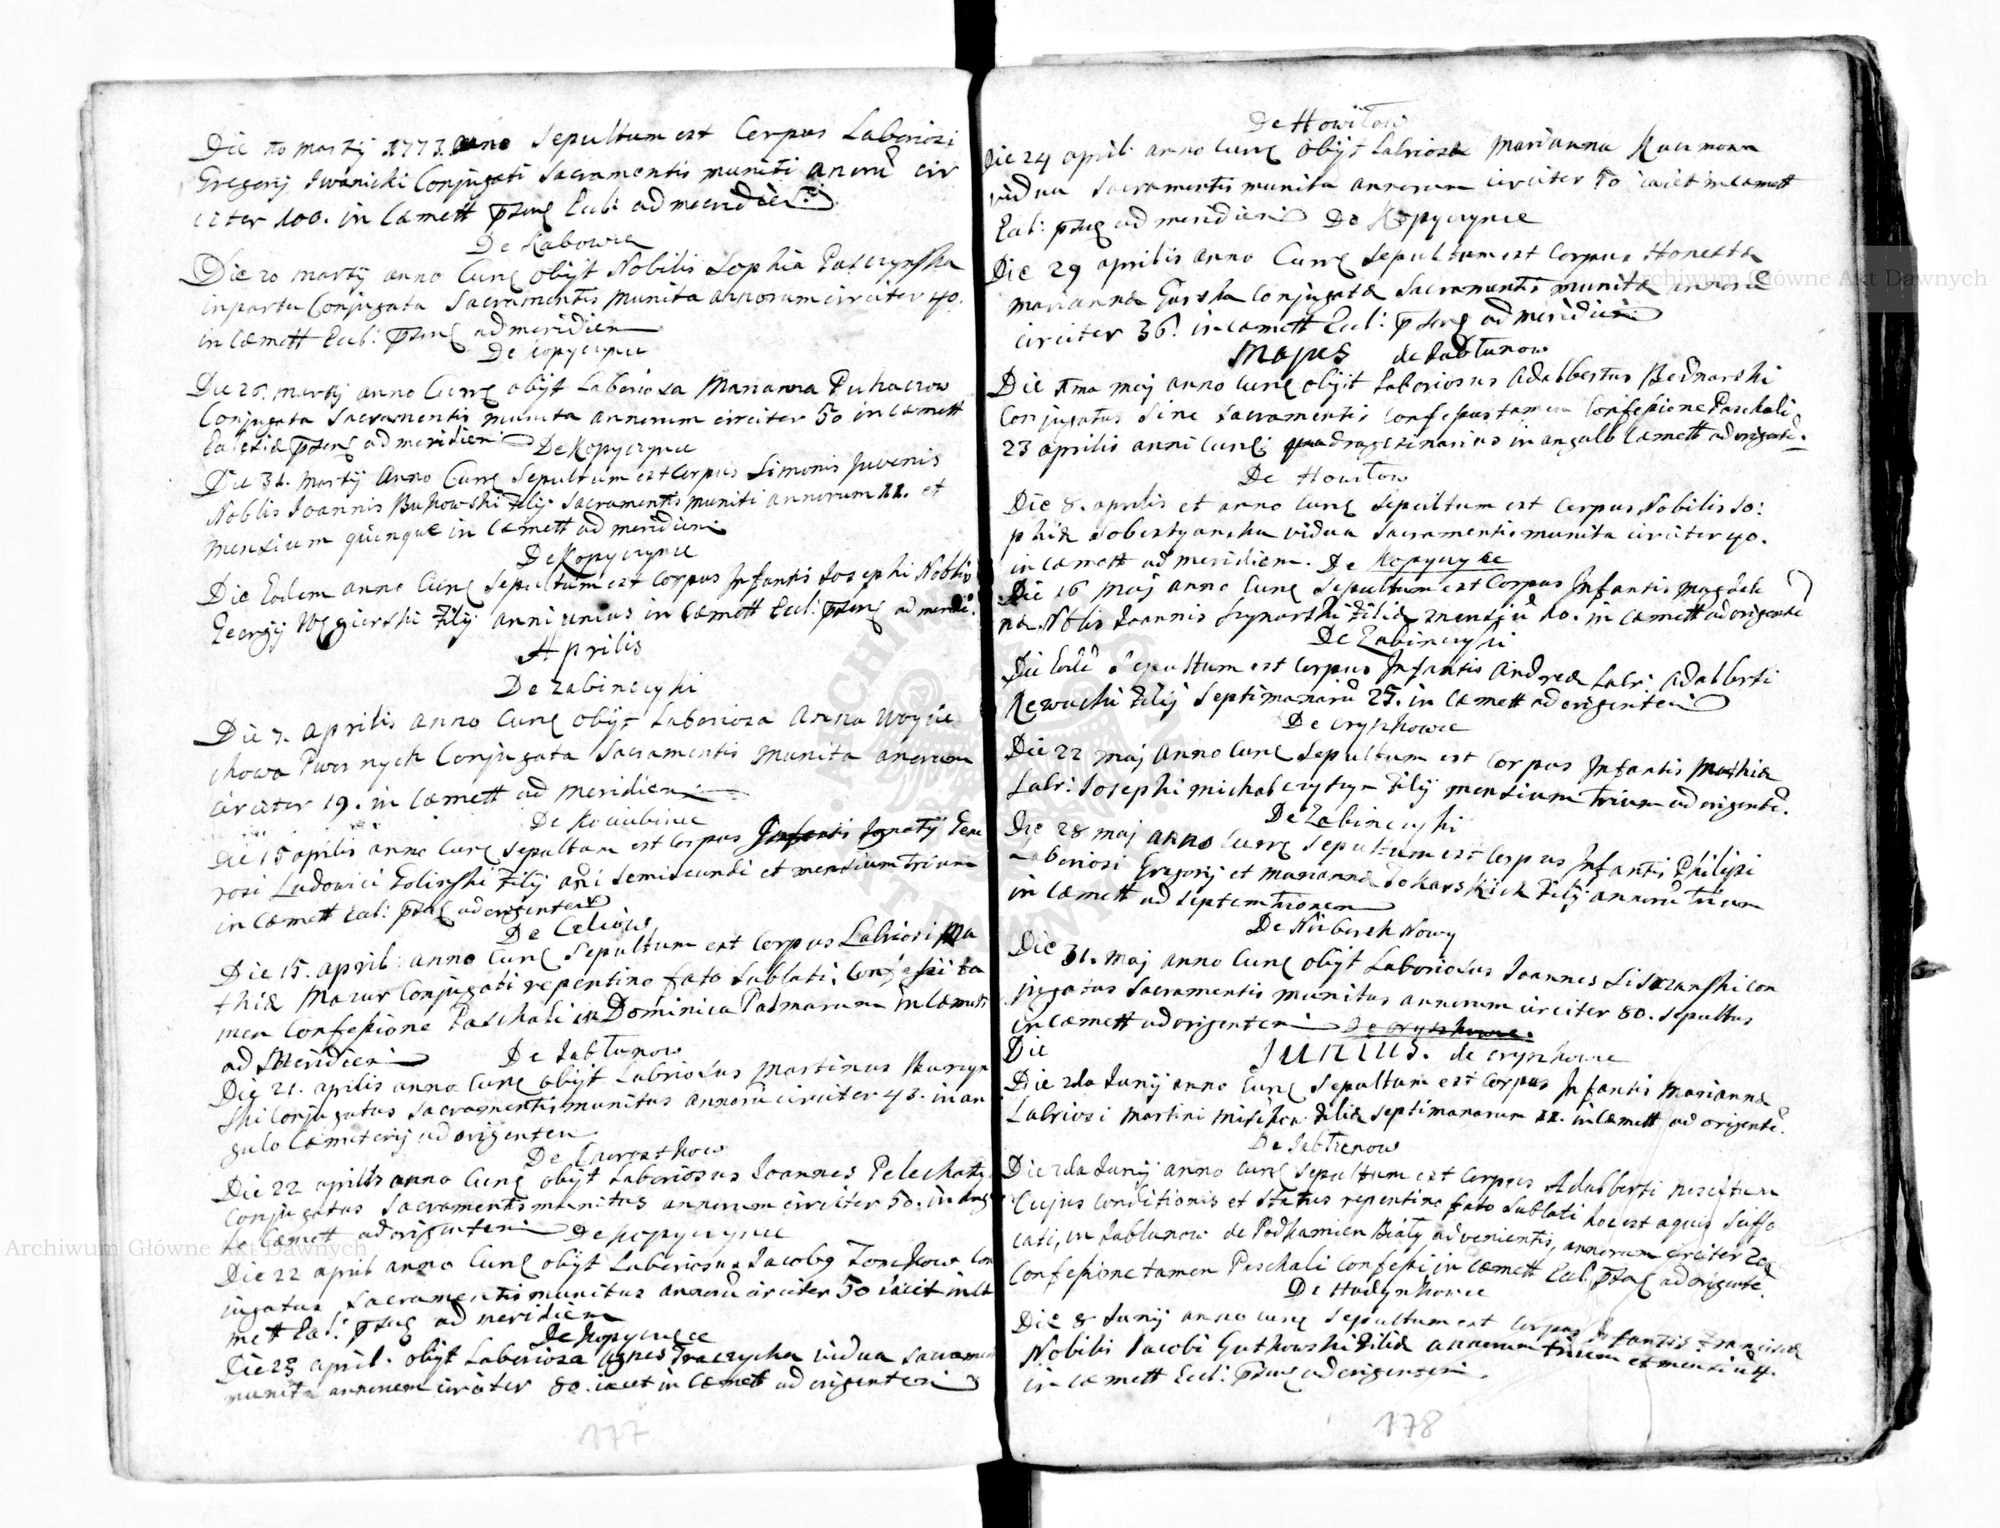 Die 10 martij 1773 anno Sepultum est Corpus Laboriosi
Gregorij Iwanicki Conjugati Sacramentis muniti anorū cir
citer 100. in Cæmett Ecclī ad meridiē
De Rabowce
Die 20 martij anno Curr obijt Nobilis Sophia Paszynska
in partu Conjugata Sacramentis munita annorum circiter 40.
in Cæmett Eccl: ad meridiem
De Kopyczynce
Die 26. martij anno Curr obijt Laboriosa Marianna Puhaczow
Conjugata Sacramentis munita annorum circiter 50 in Cæmett
Ecclesiæ ad meridiem De Kopyczynce
Die 31. martij Anno Curr Sepultum est Corpus Simonis Juvenis
Noblis Joannis Bukowski filij Sacramentis muniti annorum 11. et
mensium quinque in Cæmett ad meridiem
De Kopyczynce
Die Eodem anno Curr Sepultum est Corpus Infantis Josephi Noblis
Georgij Węgierski filij anni unius in Cæmett Eccl: ad meridi.
Aprilis
De Zabinczyki
Die 7. Aprilis anno Curr obijt Laboriosa Anna Woycie
chowa Conjugata Sacramentis munita anorum
circiter 19. in Cæmett ad meridiem
De Kociubince
Die 15 aprilis anno Curr Sepultum est Corpus Infantis Ignatij Gene
rosi Ludovici Golinski filij ani Semisecundi et mensium trium
in Cæmett Eccl: ad origentem
De Celiow
Die 15. april: anno Curr Sepultum est Corpus Labriosi Ma
thiæ Mazur Conjugati repentino fato Sublati, Confessi ta
men Confessione Paschali in Dominica Palmarum in Cæmett
ad Meridiem De Jabłunow
Die 21. aprilis anno Curr obijt Labriosus Martinus Burczyn
ski Conjugatus Sacramentis munitus annorū circiter 43. in an
gulo Cæmeterij ad origentem
De
Die 22 aprilis anno Curr obijt Laboriosus Joannes Pelechaty
Conjugatus Sacramentis munitus annorum circiter 50. in ang
lo Cæmett ad origentem De Kopyczynce
Die 22 april anno Curr obijt Laboriosus Jacobg Con
jugatus Sacramentis munitus annorū circiter 50 iacet in Cæ
mett Eccl: ad meridiem
De Kopyczynce
Die 23 april. obijt Laboriosa Agnes Tracczycha vidua Sacramen
munita annorum circiter 80. iacet in Cæmett ad origentem
177
De Howiłow
Die 24 april: anno Curr obijt Labriosa Marianna
vidua Sacramentis munita annorum circiter 50 iacet in Cæmett
Eccl: ad meridiem De Kopyczynce
Die 29 aprilis anno Curr Sepultum est Corpus Honestæ
Mariannæ Gorska Conjugatæ Sacramentis munitæ annorū
circiter 36. in Cæmett Eccl: ad meridiem
Majus de Jabłunow
Die 1ma maj anno Curr obijt Laboriosus Adalbertus Bednarski
Conjugatus Sine Sacramentis Confessus tamen Confessione Paschali
23 aprilis anni Curr: quadragesinarius in angulo Cæmett ad origent.
De Howiłow
Die 8. aprilis et anno Curr Sepultum est Corpus Nobilis So:
phiæ Sobestyanska vidua Sacramentis munita circiter 40.
in Cæmett ad meridiem. De Kopyczynce
Die 16 maj anno Curr Sepultum est Corpus Infantis Magdale
næ Noblis Joannis filiæ mensiū 10. in Cæmett ad origente
De Zabinczyki
Die Eodē Sepultum est Corpus Infantis Andreæ Labri Adalberti
filij Septimanarū 25. in Cæmett ad origentem
De Oryszkowce
Die 22 maj anno Curr Sepultum est Corpus Infantis Mathiæ
Labr: Josephi filij mensium trium ad origentē.
De Zabinczyki
Die 28 maj anno Curr Sepultum est Corpus Infantis Philippi
Laboriosi Gregorij et Mariannæ Tokarskich filij annorū trium
in Cæmett ad Septemtrionem
De Niżborek Nowy
Die 31. maj anno Curr obijt Laboriosus Joannes Liszczanski con
jugatus Sacramentis munitus annorum circiter 80. Sepultus
in Cæmett ad origentem De Orysikowce.
Die Junius. de Orysikowce
Die 2da Junij anno Curr Sepultum est Corpus Infantis Mariannæ
Labriosi Martini filiæ Septimanarum 11. in Cæmett ad origentē.
De Jabłunow
Die 2da Junij anno Curr Sepultum est Corpus Adalberti nescitum
Cujus Conditionis et Status repentino fato Sublati hoc est aquis Suffo
cati, in Jablunow de Podkamien Biały advenientis, annorum circiter 20
Confessione tamen Paschali Confessi in Cæmett Eccl: ad origentē.
De Hadynkowce
Die 8 Junij anno Curr Sepultum est Corpus Infantis Franciscæ
Nobilis Jacobi Gutkowski filiæ annorum trium et mensiū 4.
in Cæmett Eccl: ad origentem.
178
Archiwum Główne Akt Dawnych
Archiwum Główne Akt Dawnych